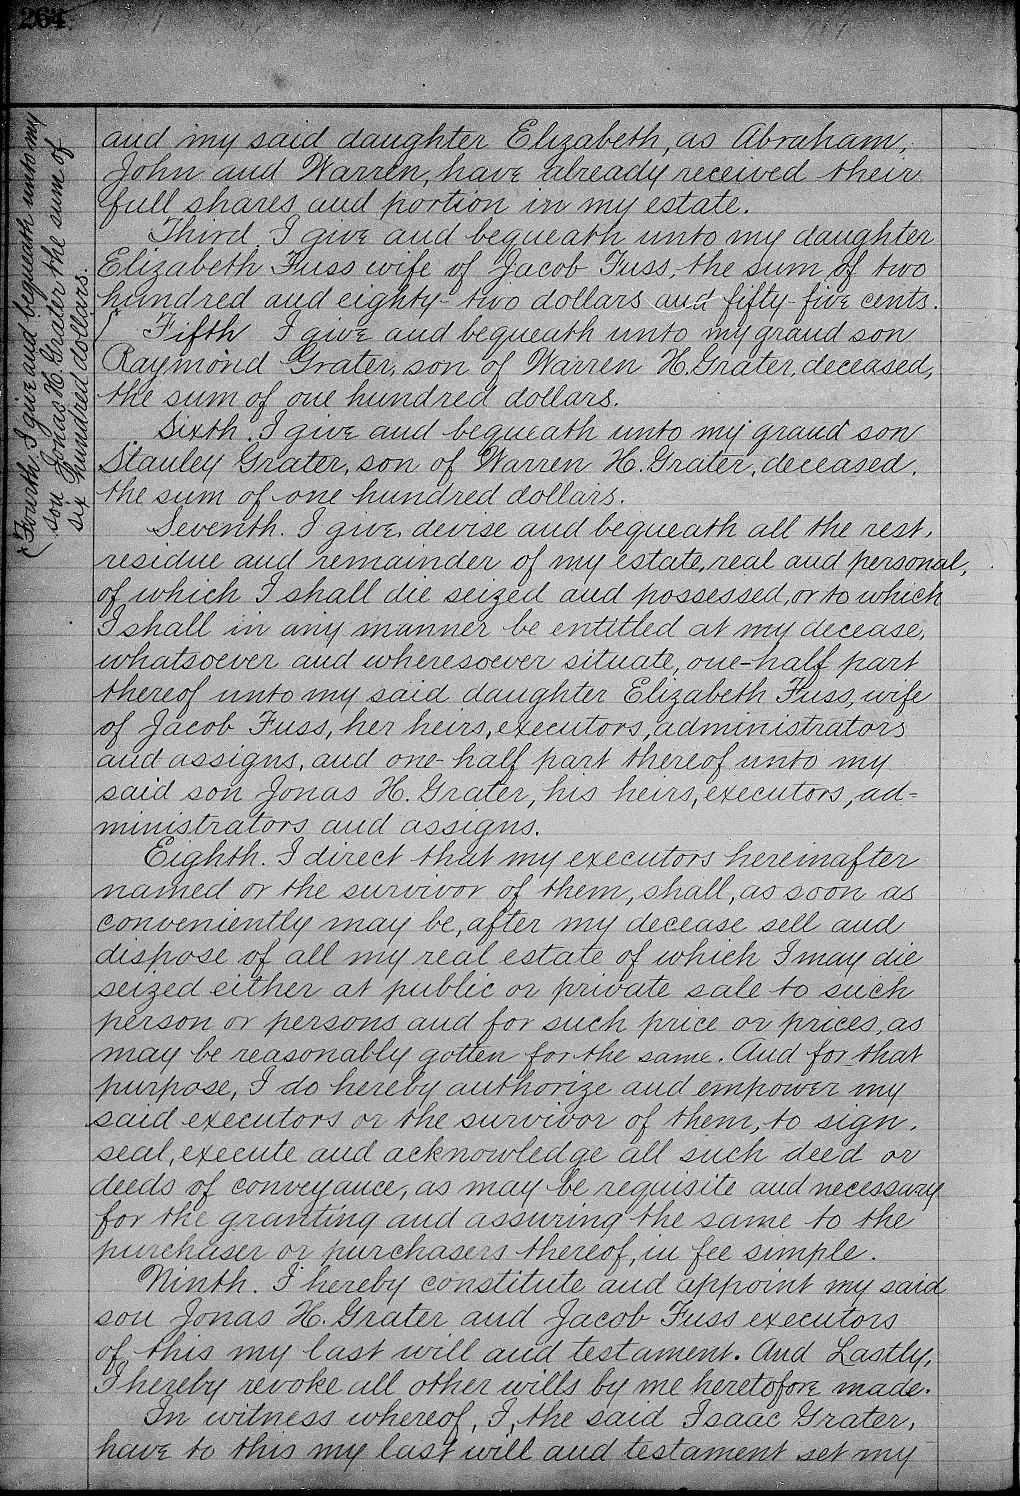 264.
and my said daughter Elizabeth, as Abraham,
John and Warren, have already received their
full shares and portion in my estate.
Third. I give and bequeath unto my daughter
Elizabeth Fuss wife of Jacob Fuss, the sum of two
hundred and eighty-two dollars and fifty-five cents.
x Fifth I give and bequeath unto my grand son
Raymond Grater, son of Warren H. Grater, deceased,
the sum of one hundred dollars.
Sixth. I give and bequeath unto my grand son
Stanley Grater, son of Warren H. Grater, deceased,
the sum of one hundred dollars.
Seventh. I give, devise and bequeath all the rest,
residue and remainder of my estate, real and personal,
of which I shall die seized and possessed, or to which
I shall in any manner be entitled at my decease,
whatsoever and wheresoever situate, one-half part
thereof unto my said daughter Elizabeth Fuss, wife
of Jacob Fuss, her heirs, executors, administrators
and assigns, and one-half part thereof unto my
said son Jonas H. Grater, his heirs, executors, ad=
ministrators and assigns.
Eighth. I direct that my executors hereinafter
named or the survivor of them, shall, as soon as
conveniently may be, after my decease sell and
dispose of all my real estate of which I may die
seized either at public or private sale to such
person or persons and for such price or prices, as
may be reasonably gotten for the same. And for that
purpose, I do hereby authorize and empower my
said executors or the survivor of them, to sign,
seal, execute and acknowledge all such deed or
deeds of conveyance, as may be requisite and necessary
for the granting and assuring the same to the
purchaser or purchasers thereof, in fee simple.
Ninth. I hereby constitute and appoint my said
son Jonas H. Grater and Jacob Fuss executors
of this my last will and testament. And Lastly,
I hereby revoke all other wills by me heretofore made.
In witness whereof, I, the said Isaac Grater,
have to this my last will and testament set my
x (Fourth. I give and bequeath unto my
son Jonas H. Grater the sum of
six hundred dollars.